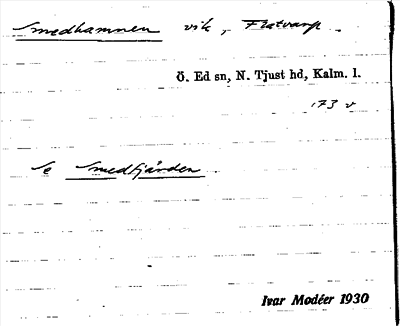 Smedhamnen vik, Flatvarp.
Ö. Ed sn, N. Tjust hd, Kalm. l.
173 v
Se Smedfjärden
Ivar Modéer 1930